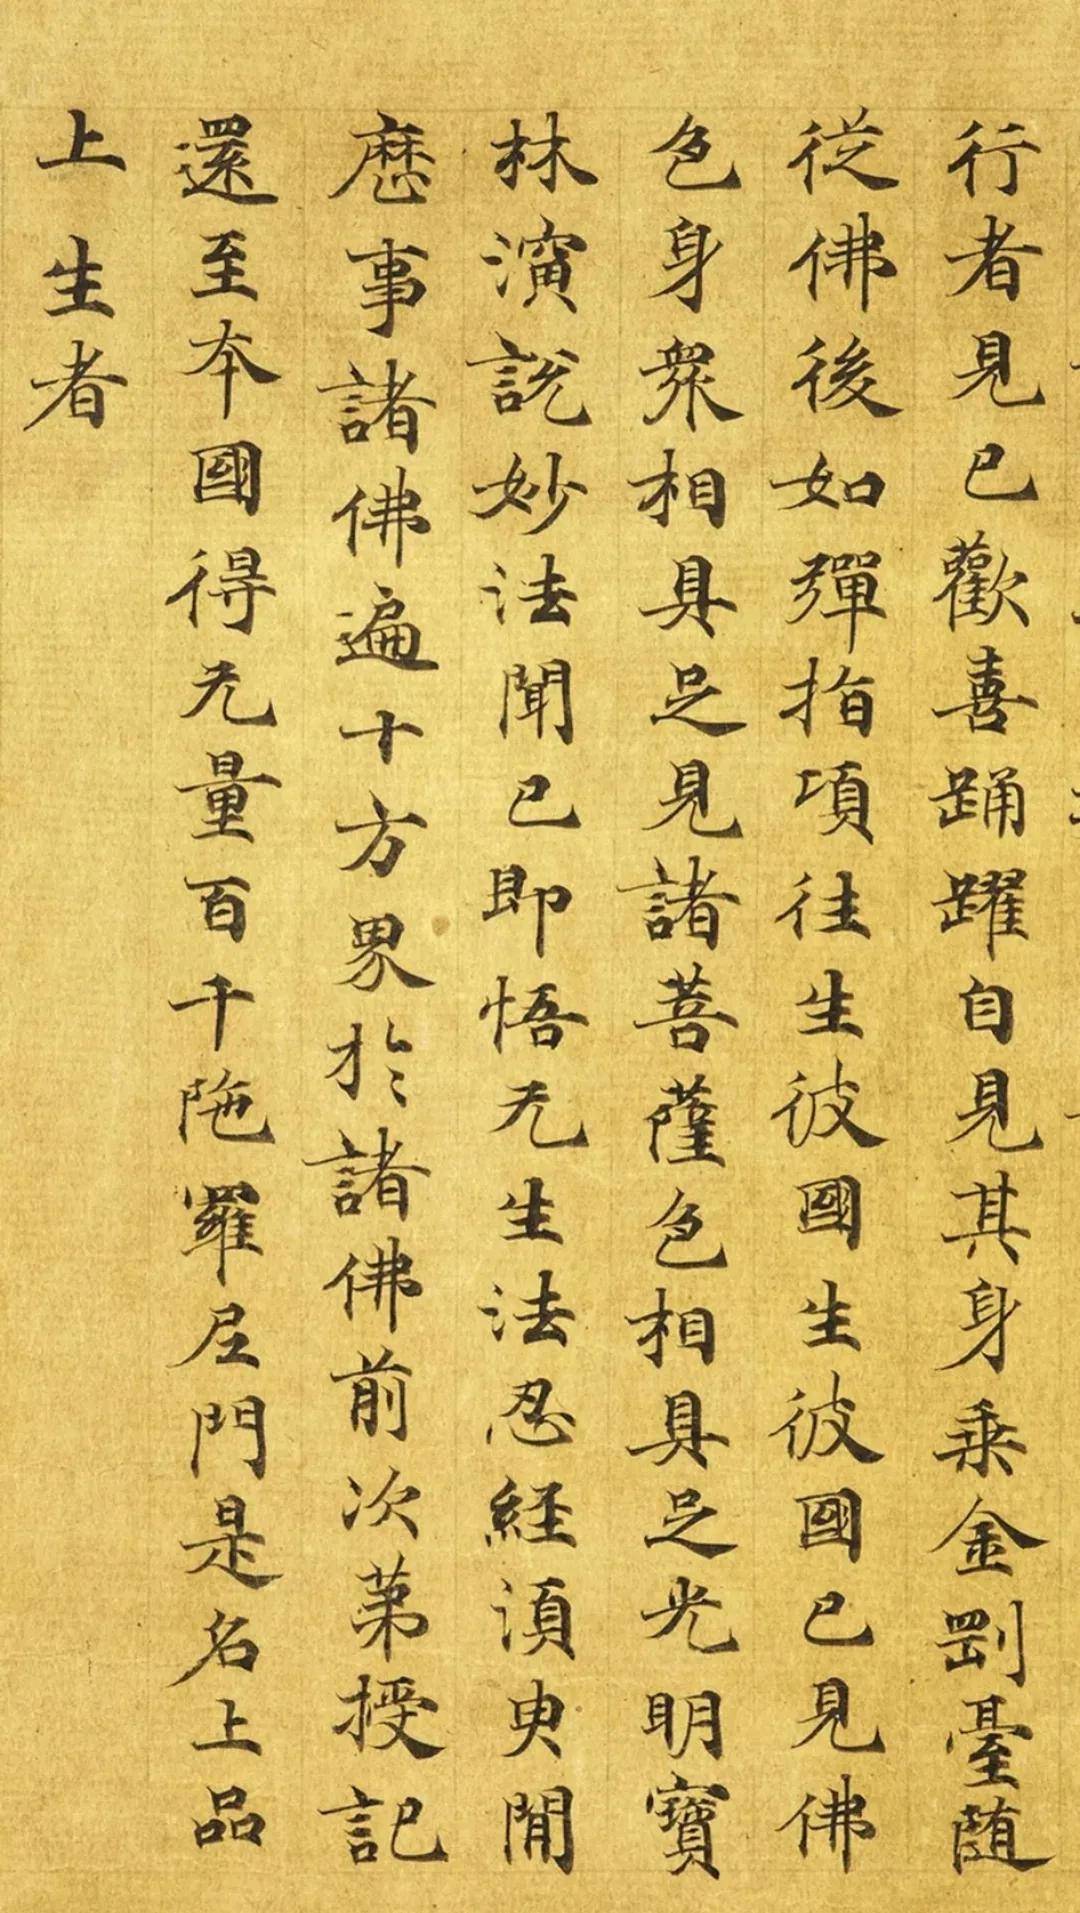 行者見已歡喜踊躍自見其身乗金剛臺随
従佛後如彈指項往生彼國生彼國已見佛
色身衆相具足見諸菩薩色相具足光明寶
林演説妙法聞已即悟无生法忍経須臾間
歴事諸佛遍十方界於諸佛前次第授記
還至本國得无量百千陁羅尼門是名上品
上生者